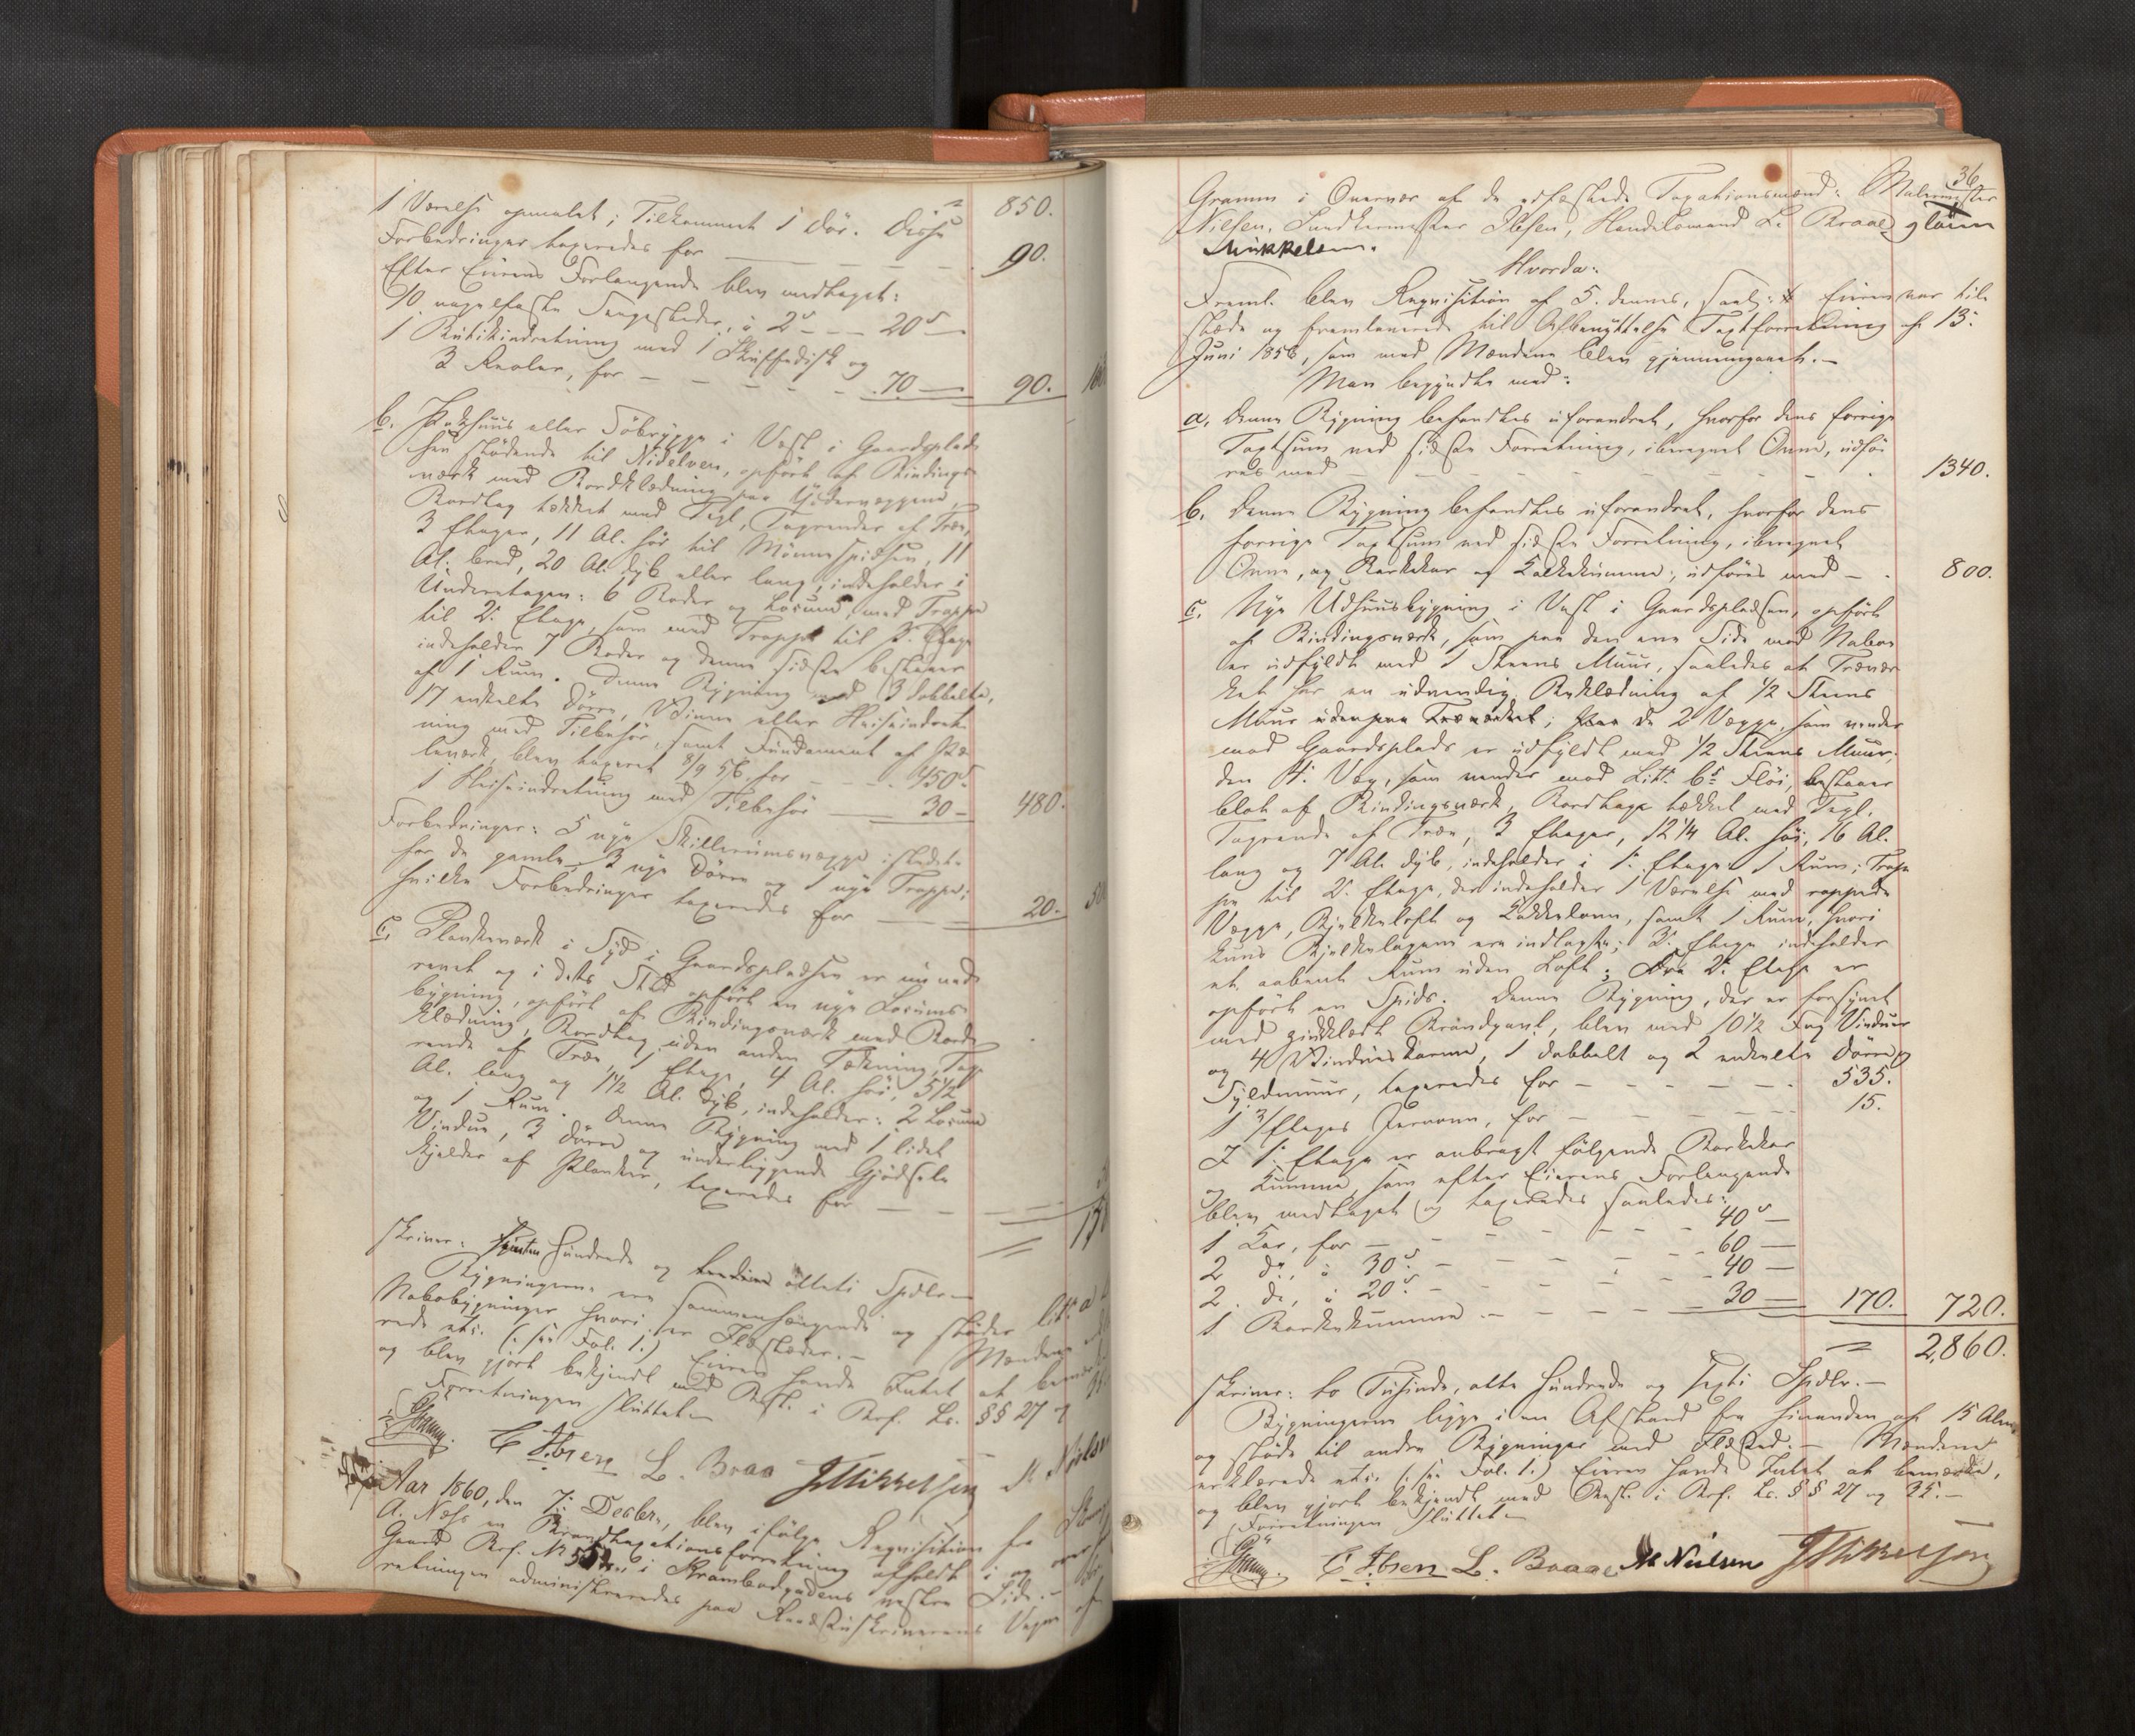 1 Værelse opmalet; Tilkommet 1 Dör. Disse = 850.
Forbedringer taxeredes for — — — — — 90.
Efter Eierens Forlangende blev medtaget:
10 nagelfaste Sengesteder, à 2 — — 20
1 Butikindretning med 1 Skuffedisk og
3 Reoler, for — — — — — 70 — 90.
b. Pakhuus eller Söbrygge i Vest i Gaardsplad-
sen stödende til Nidelven, opfört af Bindings-
værk med Bordklædning paa Ydervæggene,
Bordtag tækket med Tegl, Tagrender af Træ,
3 Etager, 11 Al. höi til Mönnespidsen, 11
Al. bred, 20 Al. dyb eller lang, indeholder i
Underetagen: 6 Boder og Locum, med Trappe
til 2. Etage, som med Trappe til 3. Etage
indeholder 7 Boder og denne sidste bestaaer
af 1 Rum. Denne Bygning med 3 dobbelte,
17 enkelte Dörre, Vinne eller Heiseindret-
ning med Tilbehör, samt Fundament af Pæ-
leværk, blev taxeret 8/9 56, for — — 450
1 Heiseindretning med Tilbehör — 30 — 480.
Forbedringer: 5 nye Skillerumsvægge istedet-
for de gamle, 3 nye Dörre og 1 nye Trappe;
hvilke Forbedringer taxeredes for — 20.
c. Plankeværk i Syd i Gaardspladsen er nu ned-
revet og i dets Sted opfört en nye Locums-
bygning, opfört af Bindingsværk med Bord-
klædning, Bordtag uden anden Tækning, Tag-
rende af Træ, 1 Etage, 4 Al. höi, 5 1/2
Al. lang og 1 1/2 Al. dyb, indeholder: 2 Locum
og 1 Rum. Denne Bygning med 1 lidet
Vindue, 3 Dörre og underliggende Gjödsel-
kjelder af Planker, taxeredes for — —
skriver: Hundrede og otteti Spdlr.
Bygningerne ere sammenhængende og stöder litr. a
Nabobygninger hvori er Ildsteder. — Mændene
rede etc. (: see Fol. 1:) Eieren havde Intet at
og blev gjort bekjendt med Best. i Brf. Lr. §§ 27 og
Forretningen sluttet
Gramm. C Ibsen L. Braa J Mikkelsen M Nielsen
Aar 1860, den 7: Decbr., blev ifölge Requisition fra
A. Næss en Brandtaxationsforretning afholdt i og over
Gaard Brf. Nr 552 i Krambodgadens vestre Side. —
retningen administreredes paa Raadstuskriverens Vegne af
36
Gramm i Overvær af de edfæstede Taxationsmænd: Malermester
Nilsen, Snedkermester Ibsen, Handelsmand L. Braae
Mikkelsen.
Hvorda:
Freml. blev Requisition af 5. dennes, saal: Eieren var til-
stede og fremleverede til Afbenyttelse Taxtforretning af 13:
Juni 1856, som med Mændene blev gjennemgaaet. —
Man begyndte med:
a. Denne Bygning befandtes uforandret, hvorfor dens forrige
Taxtsum ved sidste Forretning, iberegnet Ovne, udfö-
res med — — — — — 1340.
b. Denne Bygning befandtes uforandret, hvorfor dens
forrige Taxtsum ved sidste Forretning, iberegnet
Ovne, og Barkekar og Kalkekumme, udföres med — 800.
c. Nye Udhuusbygning i Vest i Gaardspladsen, opfört
af Bindingsværk, som paa den ene Side mod Naboen
er udfyldt med 1 Steens Muur, saaledes at Trævær-
ket har en udvendig Beklædning af 1/2 Steens
Muur udenpaa Træværket; paa de 2 Vægge, som vender
mod Gaardsplads er udfyldt med 1/2 Steens Muur;
den 4: Væg, som vender mod Litr. b's Flöi, bestaaer
blot af Bindingsværk, Bordtage tækket med Tegl,
Tagrende af Træ, 3 Etager, 12 1/4 Al. höi, 16 Al.
lang og 7 Al. dyb, indeholder i 1: Etage 1 Rum; Trap-
pe til 2. Etage, der indeholder 1 Værelse med rappede
Vægge, Bjelkeloft og Kakkelovn, samt 1 Rum, hvori
kuns Bjelkelagene ere indlagte; 3. Etage indeholder
et aabent Rum uden Loft; Fra 2. Etage er
opfört en Spids. Denne Bygning, der er forsynet
med Brandgavl, blev med 10 1/2 Fag Vinduer
og 4 Vindueskarme, 1 dobbelt og 2 enkelte Dörre,
Syldmuur, taxeredes for — — — — 535.
1 3/Etages Jernovn, for — — — — 15.
I 1: Etage er anbragt fölgende Barkekar
og Kumme, som efter Eierens Forlangende
blev medtaget og taxeredes saaledes:
1 Kar, for — — — — 40 —
2 do, à 30 — — — — 60 —
2 do, à 20 — — — — 40 —
1 Barkekumme — — — — 30 — 170. 720.
= 2,860.
skriver: to Tusinde, otte Hundrede og sexti Spdlr. —
Bygningerne ligge i en Afstand fra hinanden af 15 Alen
og stöde til andre Bygninger med Ildsted. — Mændene
erklærede etc. (: see Fol. 1:) Eieren havde Intet at bemærke,
og blev gjort bekjendt med Best. i Brf. Lr. §§ 27 og 35. —
Forretningen sluttet
Gramm. C Ibsen L. Braae M Nielsen J Mikkelsen